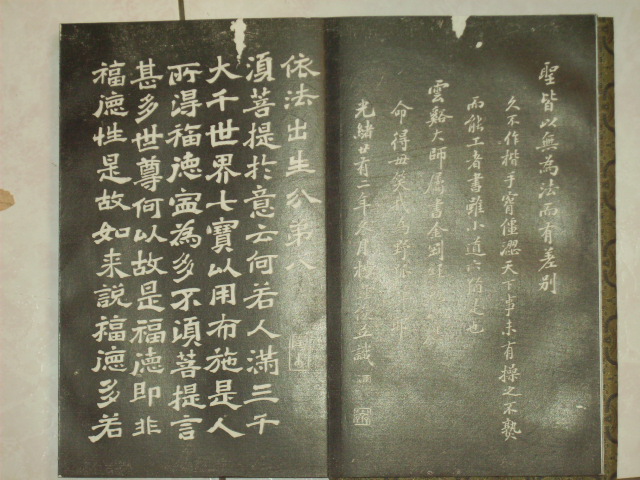 聖皆以無為法而有差別
久不作楷手實僵澀天下事未有操之不熟
而能工者書雖小道六
雲谿大師屬書金剛
命得毋笑我為野
光緒廿有二年
依法出生分第八
須菩提於意云何若人滿三千
大千世界七寶以用布施是人
所得福德寍為多不須菩提言
甚多世尊何以故是福德即非
福德性是故如来說福德多若